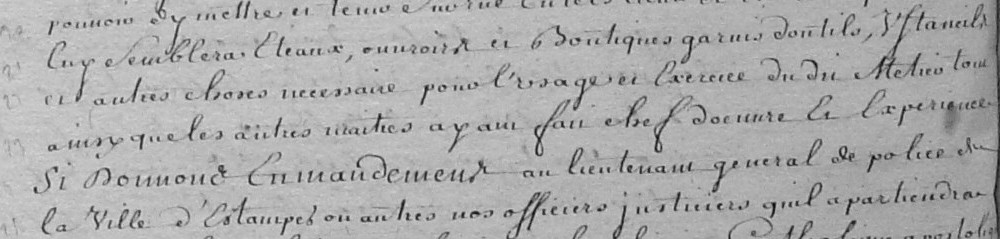 pouvoir d'y mettre et tenir
luy semblera Eteaux, ouuroirs et Boutiques garnis doutils, Vstancils
et autres choses necessaire pour l'vsage et Exercice du dit Metier tout
ainsy que les autres maitres ayant fait chef doeuure et Experience
Si Donnons Enmandement au lieutenant general de police de
la Ville d'Estampes ou autres nos officiers justiciers quil apartiendra